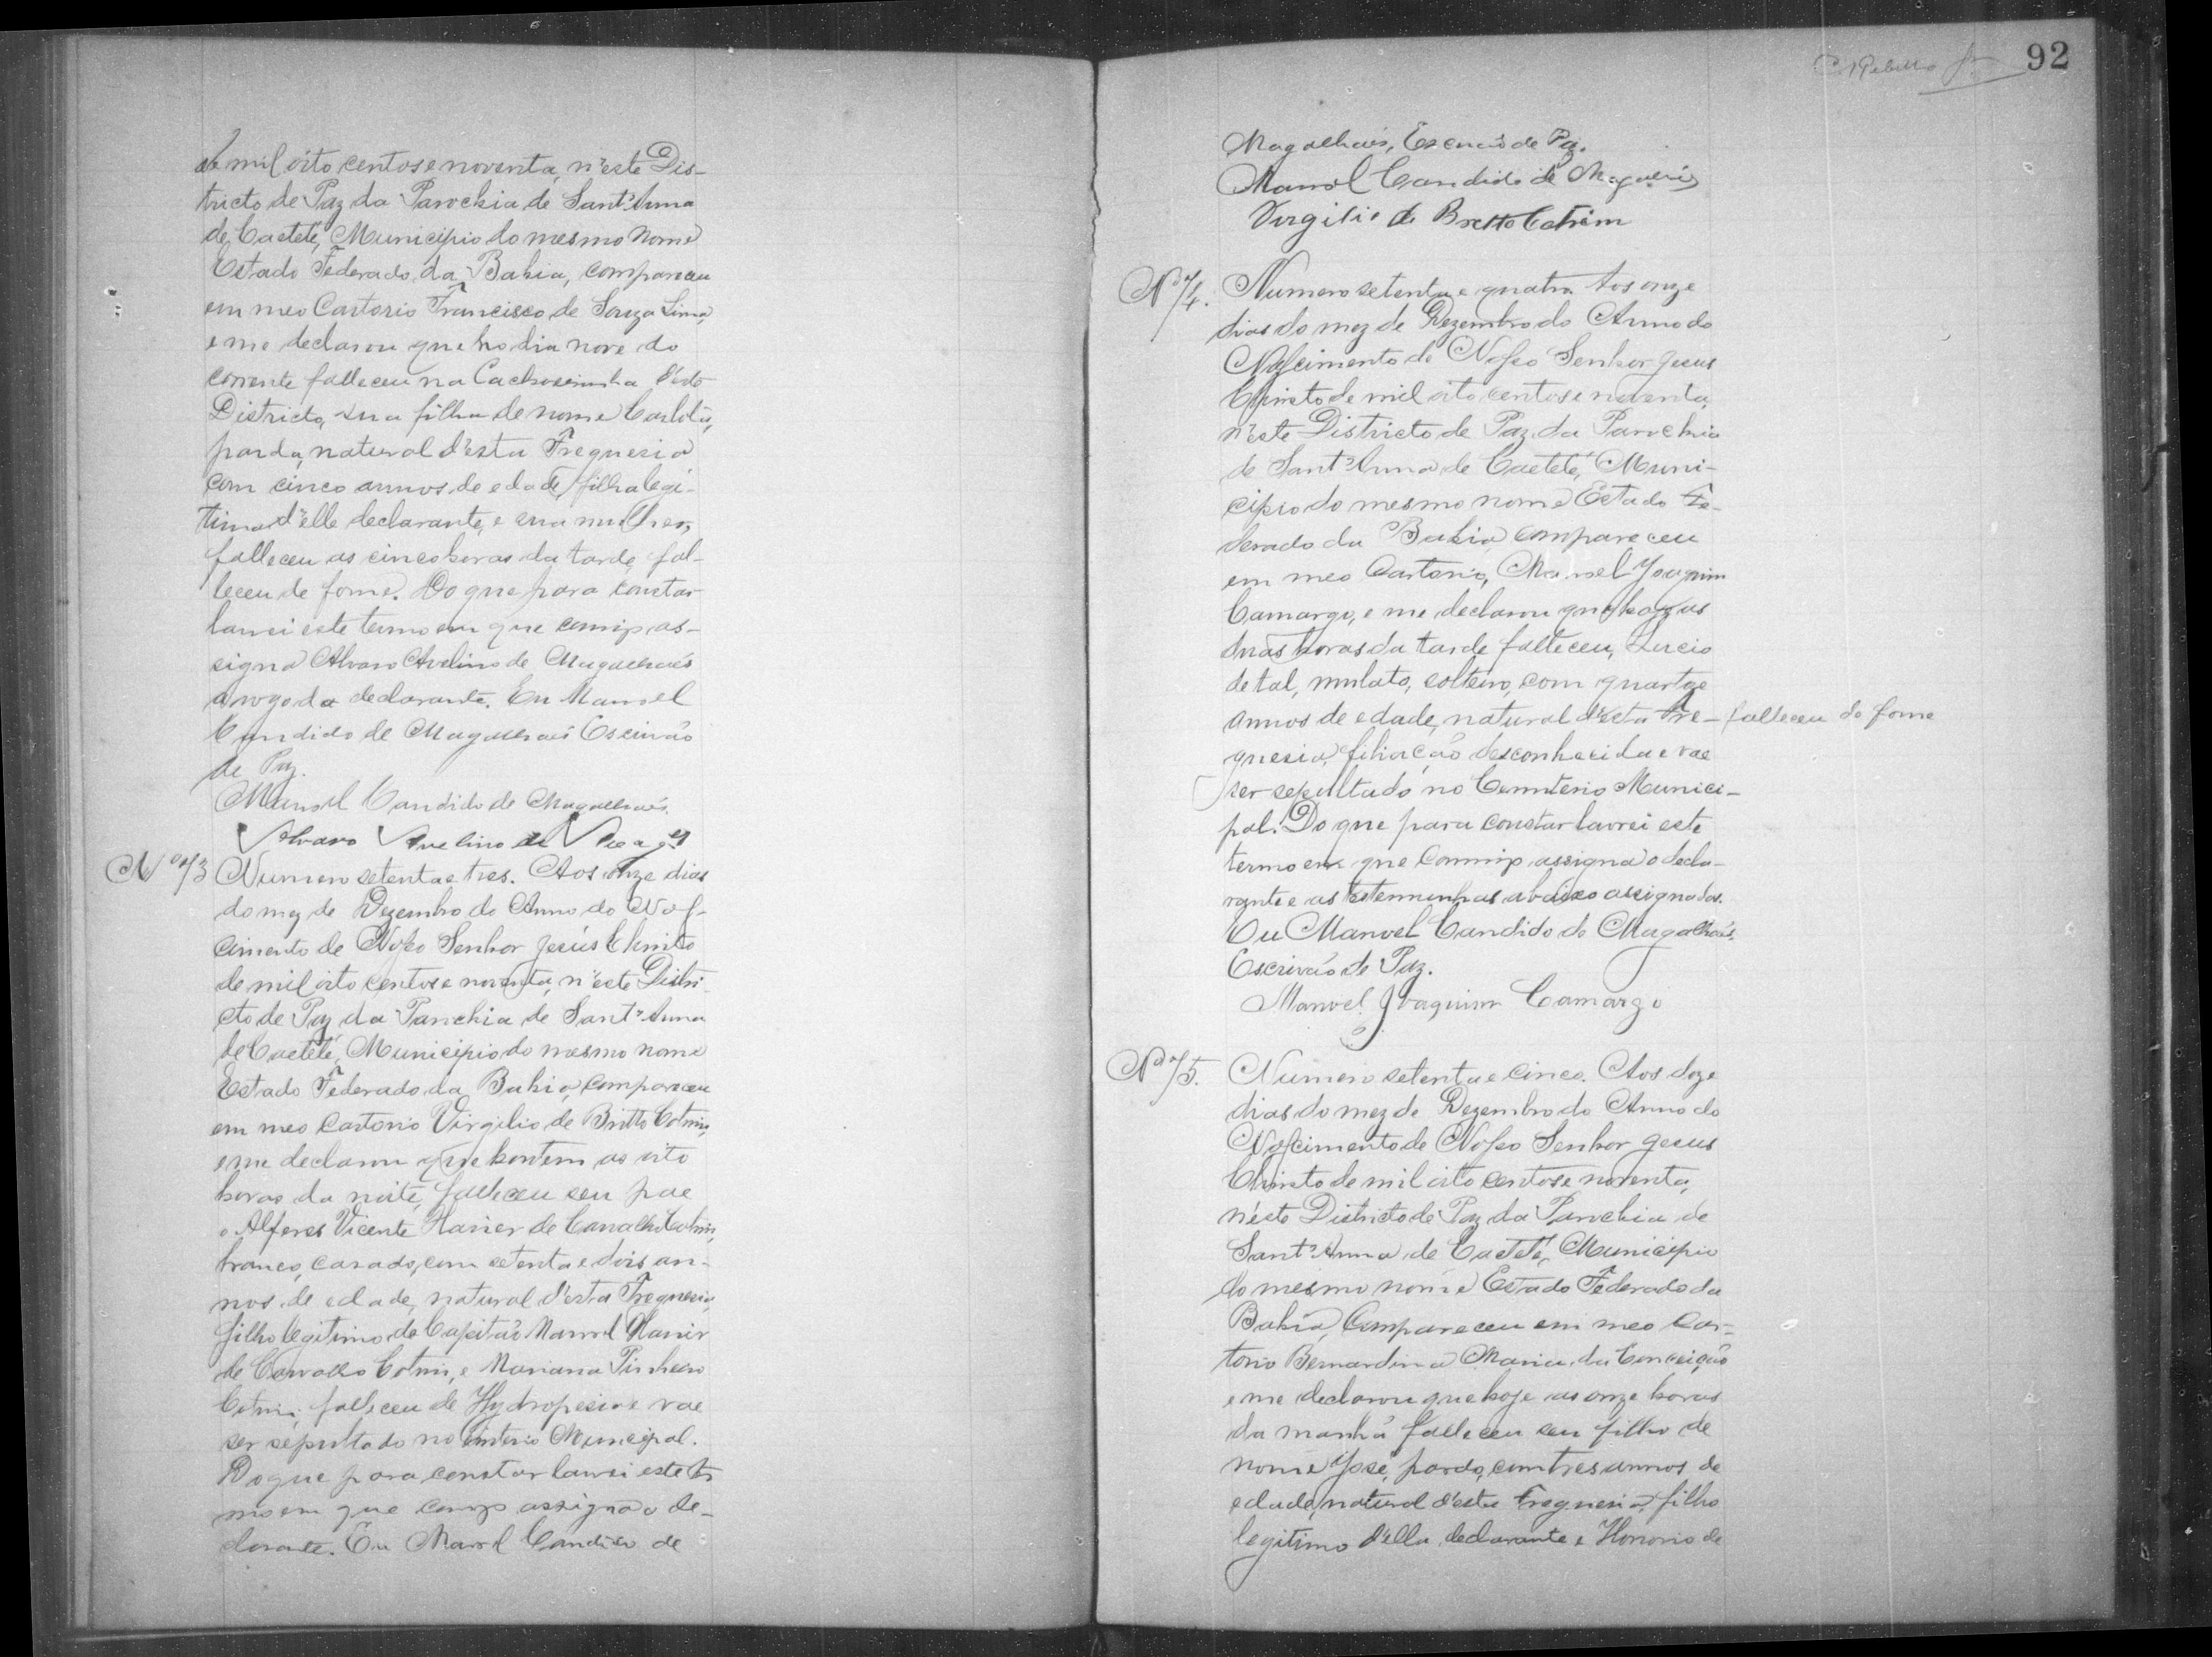 de mil oito centos e noventa, n'este Dis-
tricto de Paz da Parochia de Sant'Anna
de Caeteté, Municipio do mesmo nome
Estado Federado da Bahia, compareceu
em meo Cartorio Francisco de Souza Lima,
e me declarou que no dia nove do
corrente falleceu na Cachoeirinha d'este
Districto, sua filha de nome Carlota,
parda, natural d'esta Freguesia
com cinco annos de edade, filha legi-
tima d'elle declarante, e sua mulher,
falleceu as cinco horas da tarde, fal-
leceu de fome. Do que para constar
lavrei este termo em que comigo as-
signa Alvaro Avelino de Magalhaẽs
a rogo da declarante. Eu Manoel
Candido de Magalhaẽs Escrivão
de Paz.
Manoel Candido de Magalhaẽs.
Alvaro Avelino de
Nº 73 Numero setenta e tres. Aos onze dias
do mez de Dezembro do Anno do Nas-
cimento de Nosso Senhor Jesus Christo
de mil oito centos e noventa, n'este Distri-
cto de Paz da Parochia de Sant'Anna
de Caeteté, Municipio do mesmo nome
Estado Federado da Bahia, compareceu
em meo Cartorio Virgilio de Britto Cotrim,
e me declarou que hontem as oito
horas da noite, falleceu seu pae
o Alferes Vicente Xavier de Carvalho Cotrim,
branco, casado, com setenta e dois an-
nos de edade, natural d'esta Freguesia,
filho legitimo do Capitão Manoel Xavier
de Carvalho Cotrim, e Mariana Pinheiro
Cotrim, falleceu de Hydropesia e vae
ser sepultado no Cimiterio Municipal.
Do que para constar lavrei este ter
mo em que comigo assigna o de-
clarante. Eu Manoel Candido de
92
Magalhaẽs, Escrivão de Paz.
Manoel Candido de Magalhaẽs
Virgilio de Britto Cotrim
Nº 74. Numero setenta e quatro. Aos onze
dias do mez de Dezembro do Anno do
Nascimento de Nosso Senhor Jesus
Christo de mil oito centos e noventa,
n'este Districto de Paz da Parochia
de Sant'Anna de Caeteté, Muni-
cipio do mesmo nome Estado Fe-
derado da Bahia compareceu
em meo Cartorio, Manoel Joaquim
Camargo, e me declarou que hoje as
duas horas da tarde falleceu, Lucio
de tal, mulato, solteiro, com
annos de edade, natural d'esta Fre- falleceu de fome
guesia, filiação desconhecida e vae
ser sepultado no Cemiterio Munici-
pal. Do que para constar lavrei este
termo em que commigo assigna o decla-
rante e as testemunhas abaixo assignadas.
Eu Manoel Candido de Magalhaẽs.
Escrivão de Paz.
Manoel Joaquim Camargo
Nº 75. Numero setenta e cinco. Aos doze
dias do mez de Dezembro do Anno do
Nascimento de Nosso Senhor Jesus
Christo de mil oito centos e noventa,
n'este Districto de Paz da Parochia de
Sant'Anna de Caeteté, Municipio
do mesmo nome Estado Federado da
Bahia, Compareceu em meo Car-
torio Bernardina Maria da Conceição
e me declarou que hoje as onze horas
da manhã falleceu seu filho de
nome José, pardo, com tres annos de
edade, natural d'esta Freguesia, filho
legitimo d'ella declarante e Honorio de